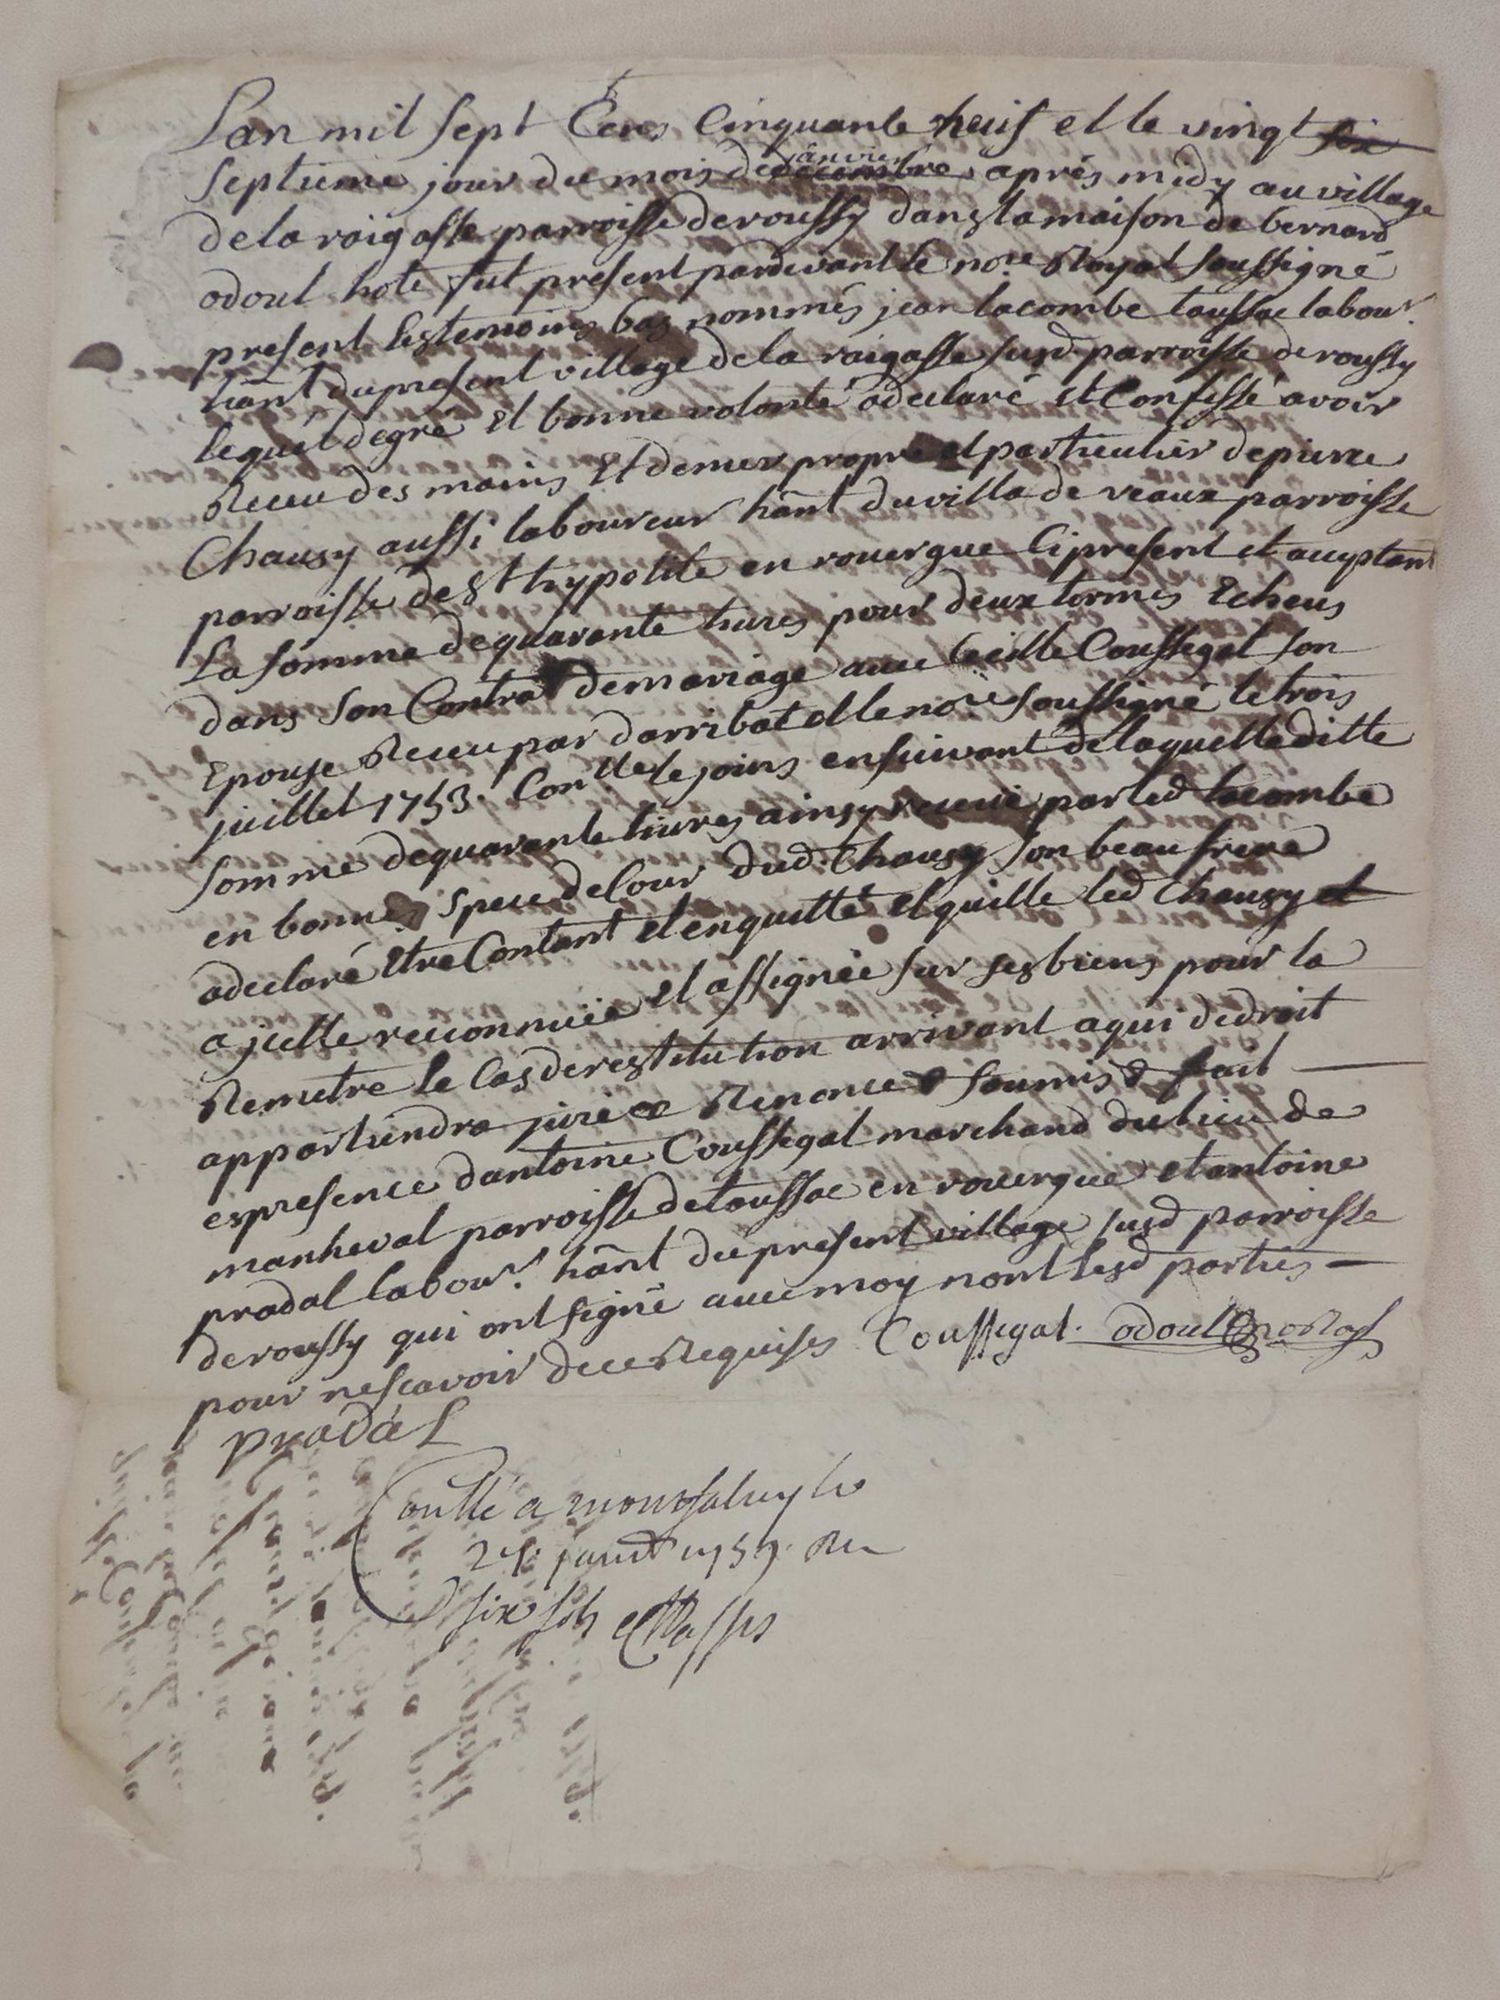 Lan mil sept Cens Cinquante neuf et le vingt six
septieme jour du mois de decembre janvier après midy au village
de la raigasse parroisse de roussy dans la maison de bernard
odoul hote fut present pardevant le nore Royal soussigné
present les temoins bas nommés jean lacombe labour
hant du present village de la raigasse susd parroisse de roussy
lequel de gré et bonne volonté a declaré et Confessé avoir
Receu des mains et denier propre et particulier de pierre
Chausy aussi laboureur hant du villa de veaux parroisse
parroisse de St hypolite en rouergue Cipresent et aceptant
La somme de quarante livres pour deux termes Echeus
dans son Contrat de mariage avec Cecille Coussegal son
Epouse Receu par darribat et le nore soussigné le trois
juillet 1753. Conlle le joins ensuivant de laquelle ditte
somme de quarante livres ainsy receue par led lacombe
en bonnes espece de Cour dud. Chausy son beau frere
a declaré Etre Content et en quitte et quille led Chausy et
a jcelle reconnuée et assignée sur ses biens pour la
Remetre le Cas de restitution arrivant a qui de droit
appartiendra juré Renoncé & soumis & fait
es presence dantoine Coussegal marchand du lieu de
manheval parroisse de toussac en rouergue et antoine
pradal labour. hant du present village susd parroisse
de roussy qui ont signé avec moy non lesd parties
pour ne scavoir de ce Requises Coussegal. odoul no Roy
pradal
Conllé a montsalvy le
27. janv 1759. Ru
six sols